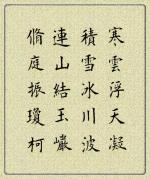 寒雲浮天凝
積雪冰川波
連山結玉巖
脩庭振瓊柯